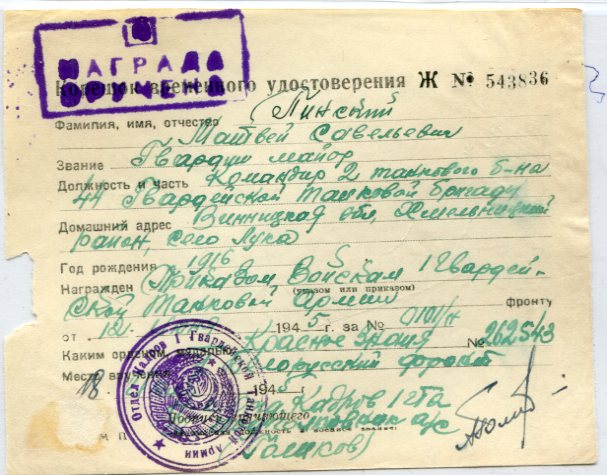 НАГРАДА
ВРУЧЕНА
Корешок временного удостоверения Ж № 543836
Фамилия, имя, отчество Пинский
Матвей Савельевич
Звание Гвардии майор
Должность и часть Командир 2 танкового б-на
44 Гвардейской Танковой бригады
Домашний адрес Винницкая обл, Хмельницкий
район, село Лука
Год рождения 1916
Награжден Приказом Войскам 1 Гвардей-
(указом или приказом)
ской Танковой Армии фронту
от 194 5 г. за №
Каким орденом, Красное знамя № 262543
Место вручения Белорусский фронт
18 194
Кадров 1 гта
Подпись вручающего
Отдел Кадров 1 Гвардейской Танковой Армии